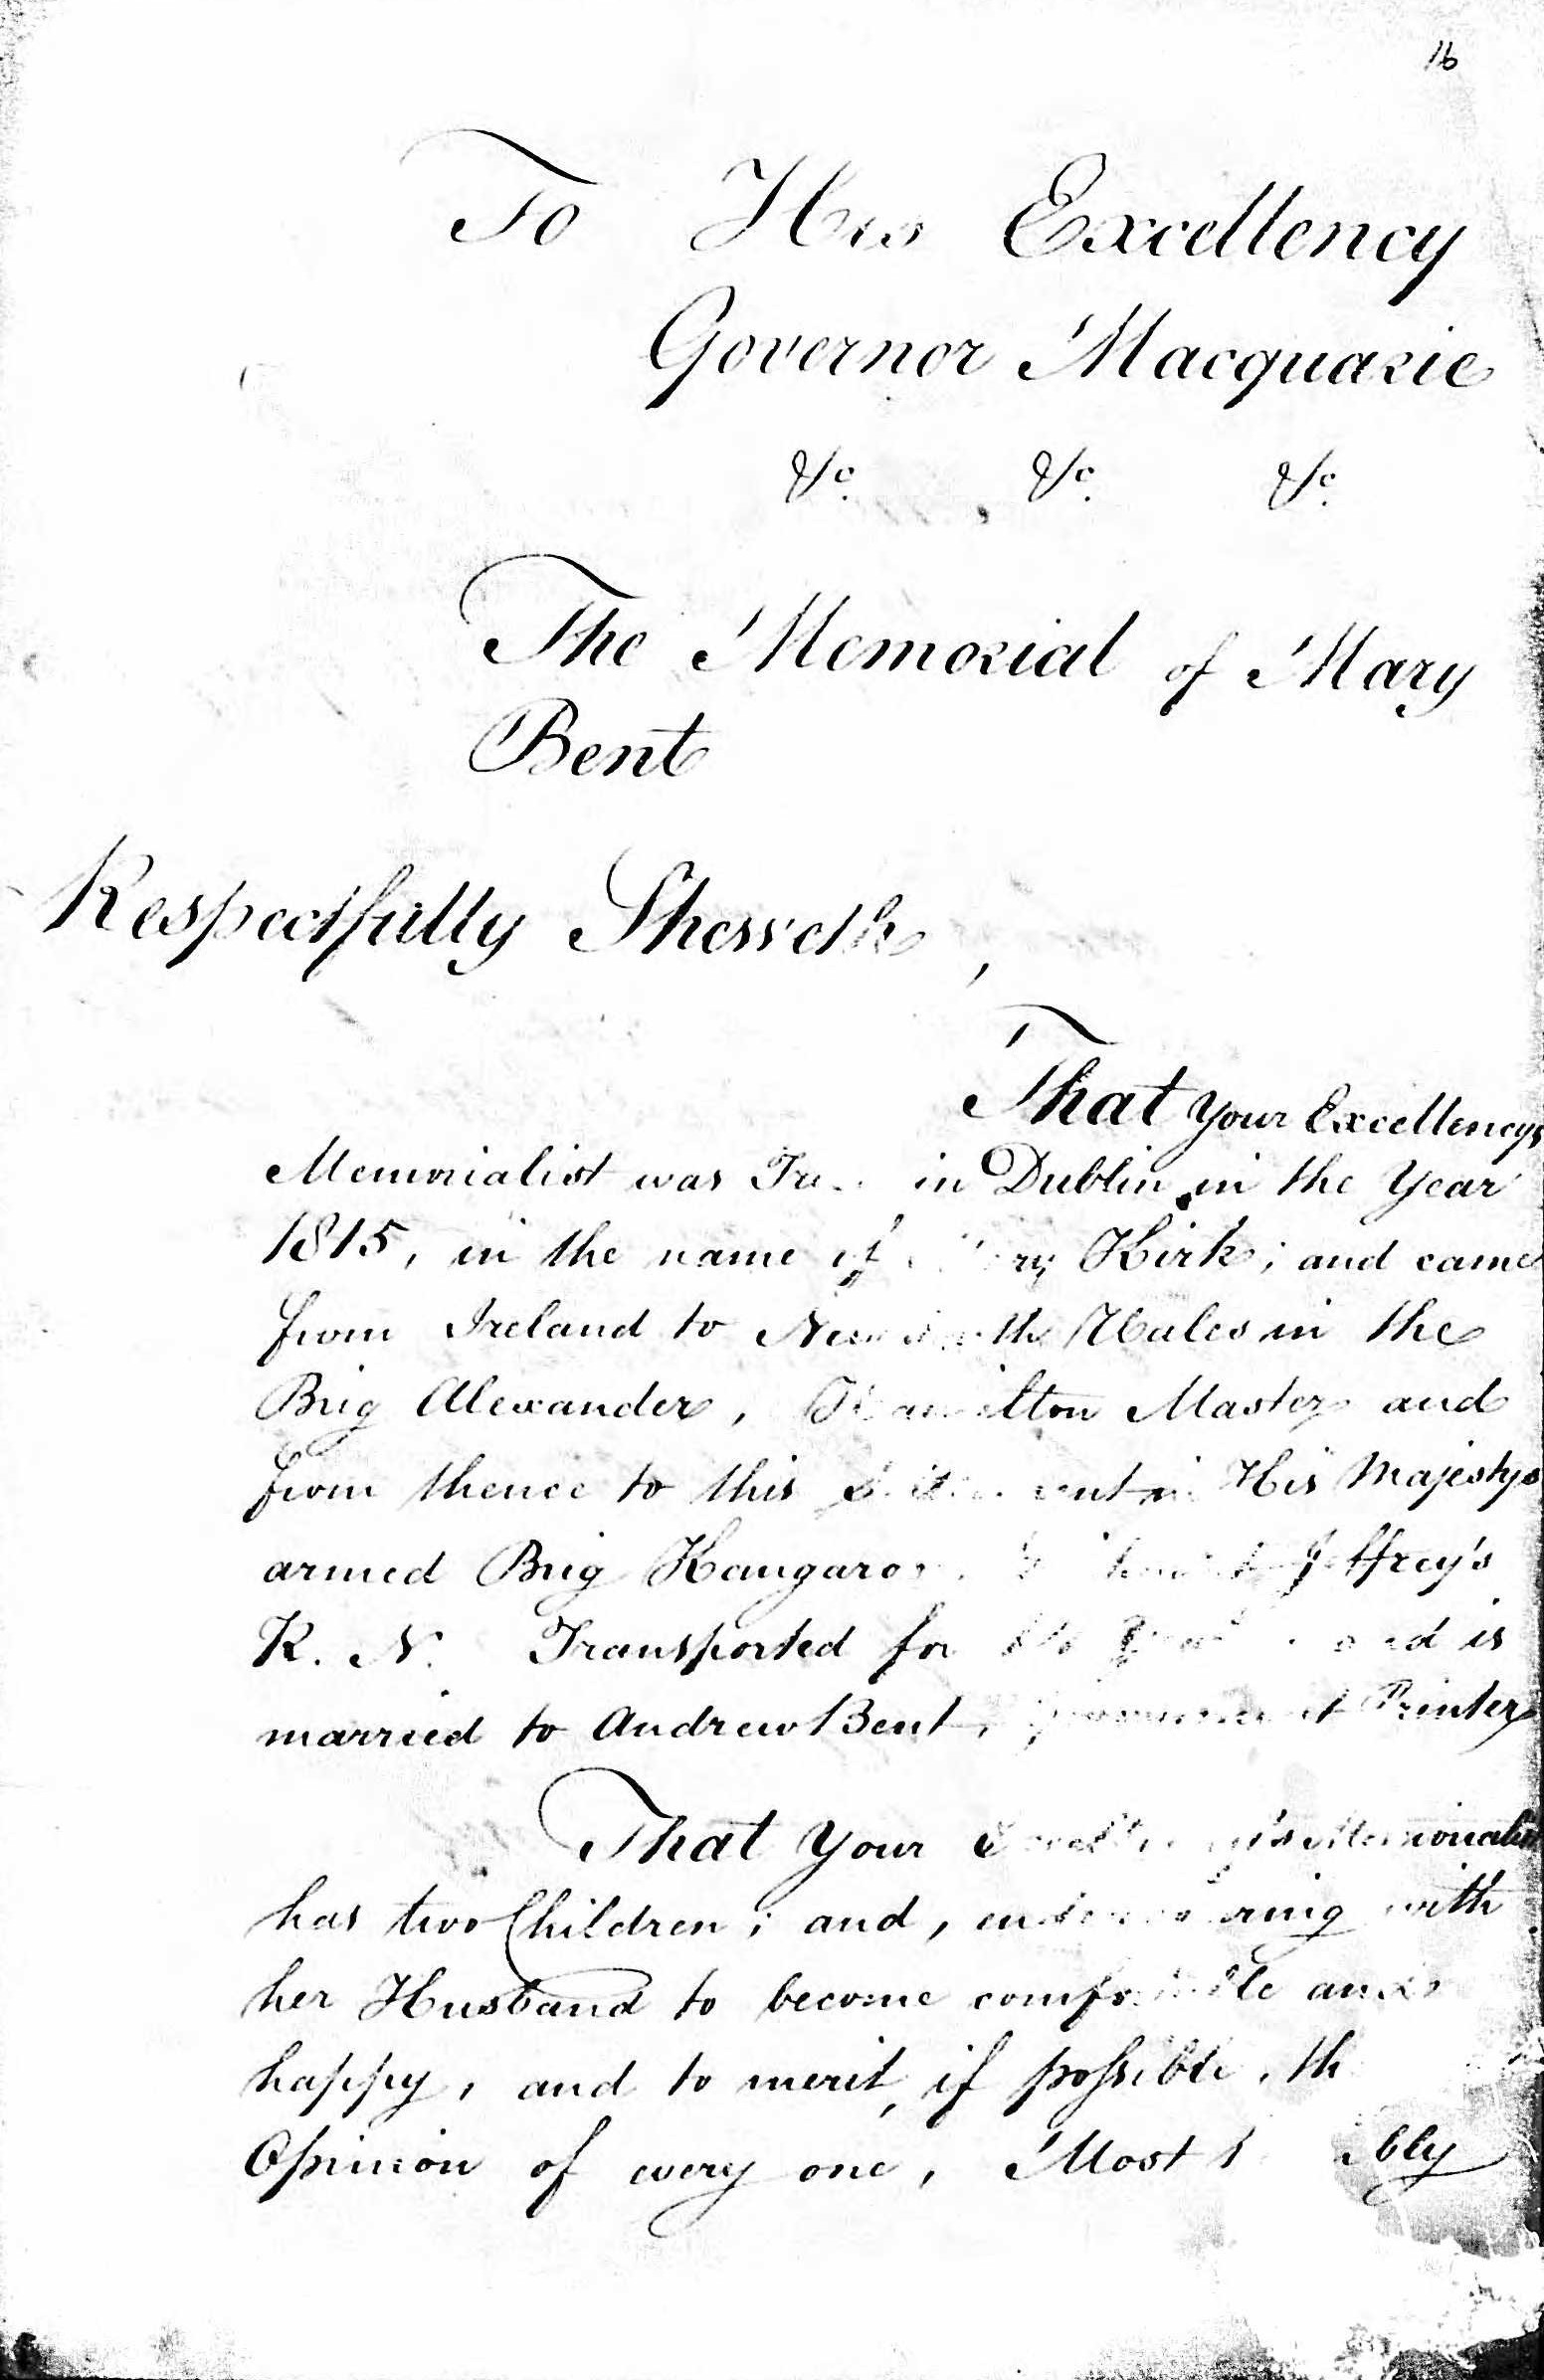 16
To His Excellency
Governor Macquarie
&c. &c. &c.
The Memorial of Mary
Bent
Respectfully Sheweth,
That Your Excellencys
Memorialist was in Dublin in the Year
1815, in the name of Mary Kirk; and came
from Ireland to New South Wales in the
Brig Alexander, Hamilton Master and
from thence to this Settlement in His Majestys
armed Brig Kangaroo, Lieutenant Jeffrey's
R. N. Transported for and is
married to Andrew Bent, Government Printer
That Your Excellency's Memorialist
has two Children; and, endeavouring with
her Husband to become comfortable and
happy, and to merit, if possible, th
Opinion of every one, Most bly